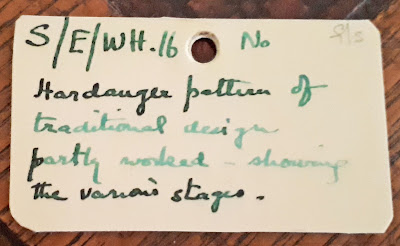 S/E/WH.16 No
Hardanger pattern of
traditional design
partly worked - showing
the various stages.